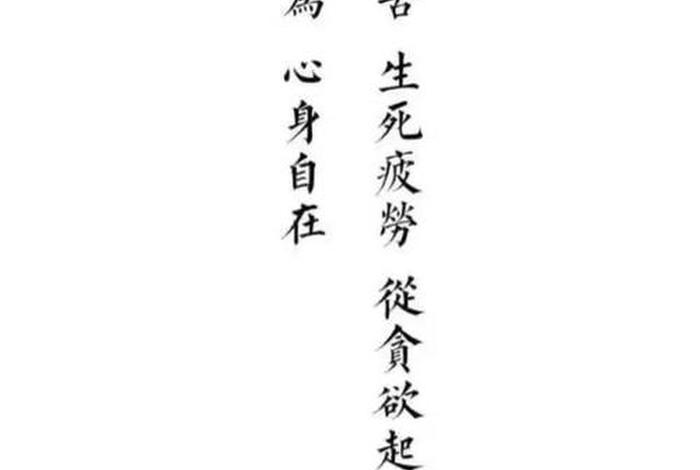 生死疲勞 從貪欲起
為 心身自在